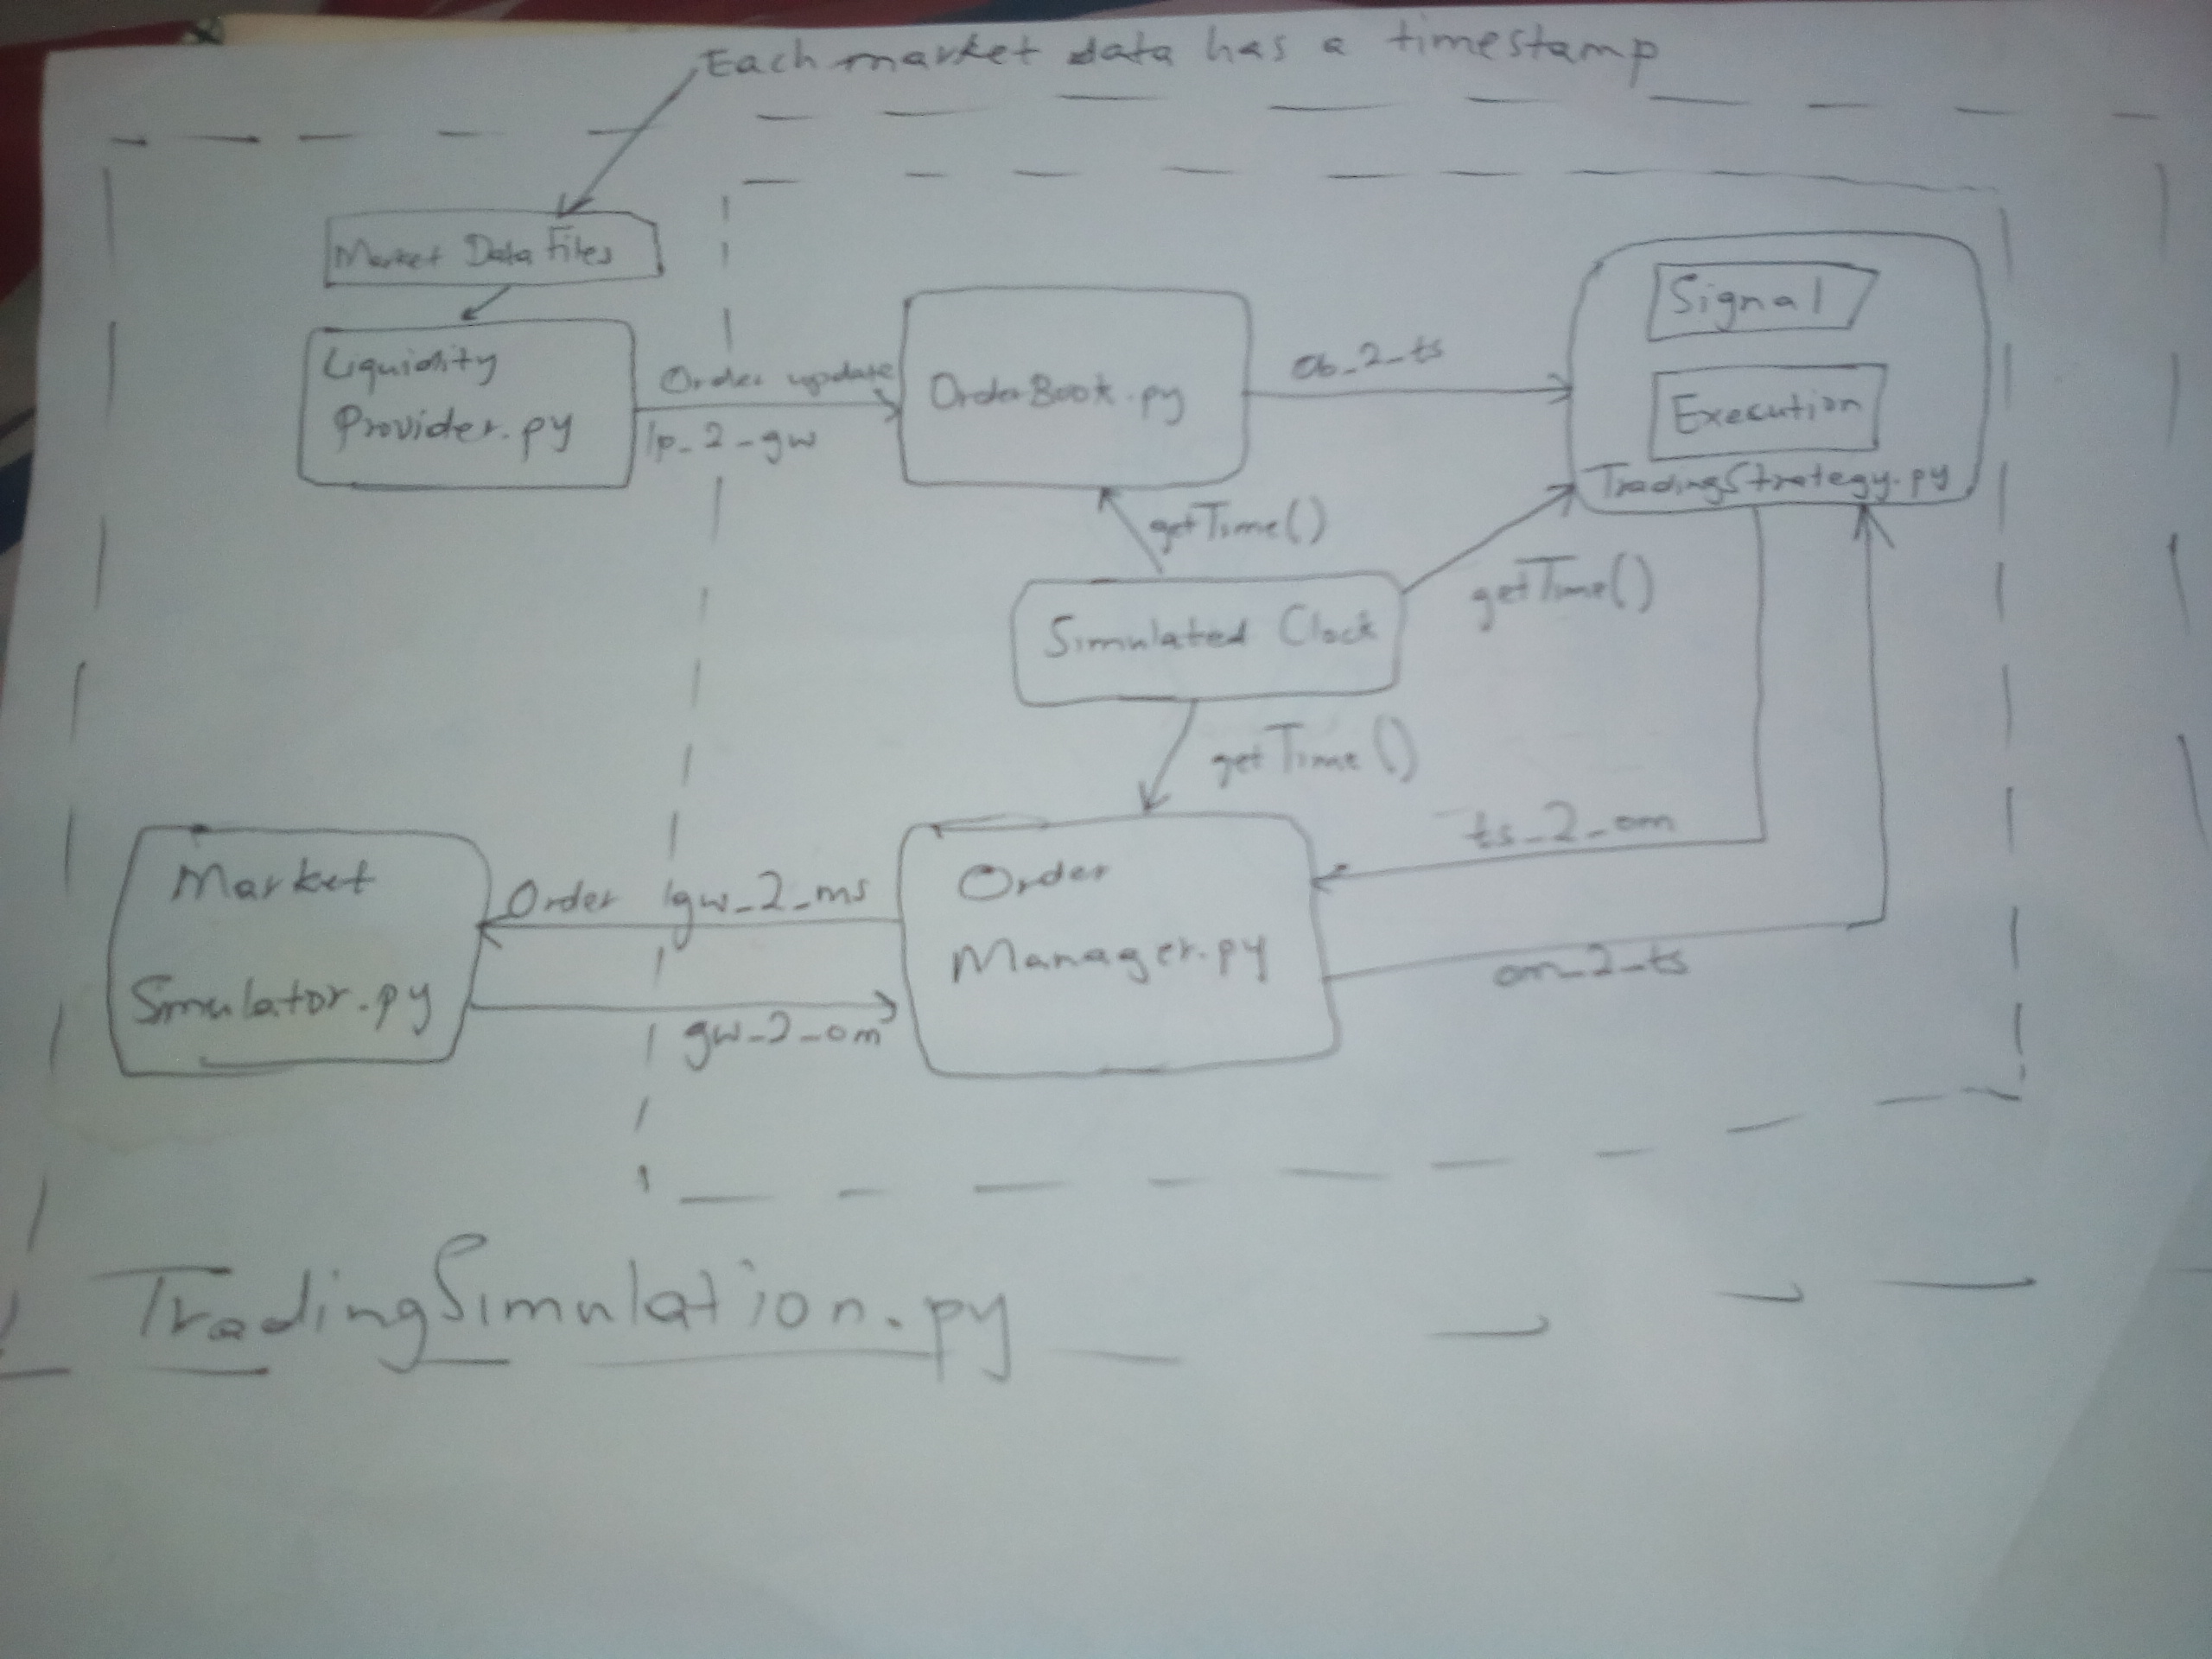 Each market data has a timestamp
Market Data Files
Liquidity
Provider.py
Order update
lp_2_gw
OrderBook.py
ob_2_ts
Signal
Execution
TradingStrategy.py
getTime()
getTime()
Simulated Clock
getTime()
Market
Simulator.py
Order gw_2_ms
gw_2_om
Order
Manager.py
ts_2_om
om_2_ts
TradingSimulation.py